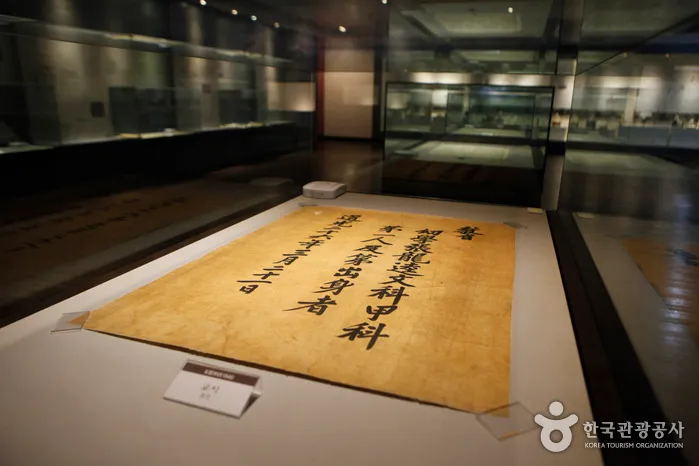 敎旨
幼學張龍逵文科甲科
第一人及第出身者
道光二十六年三月二十一日
교지
敎旨
한국관광공사
KOREA TOURISM ORGANIZATION